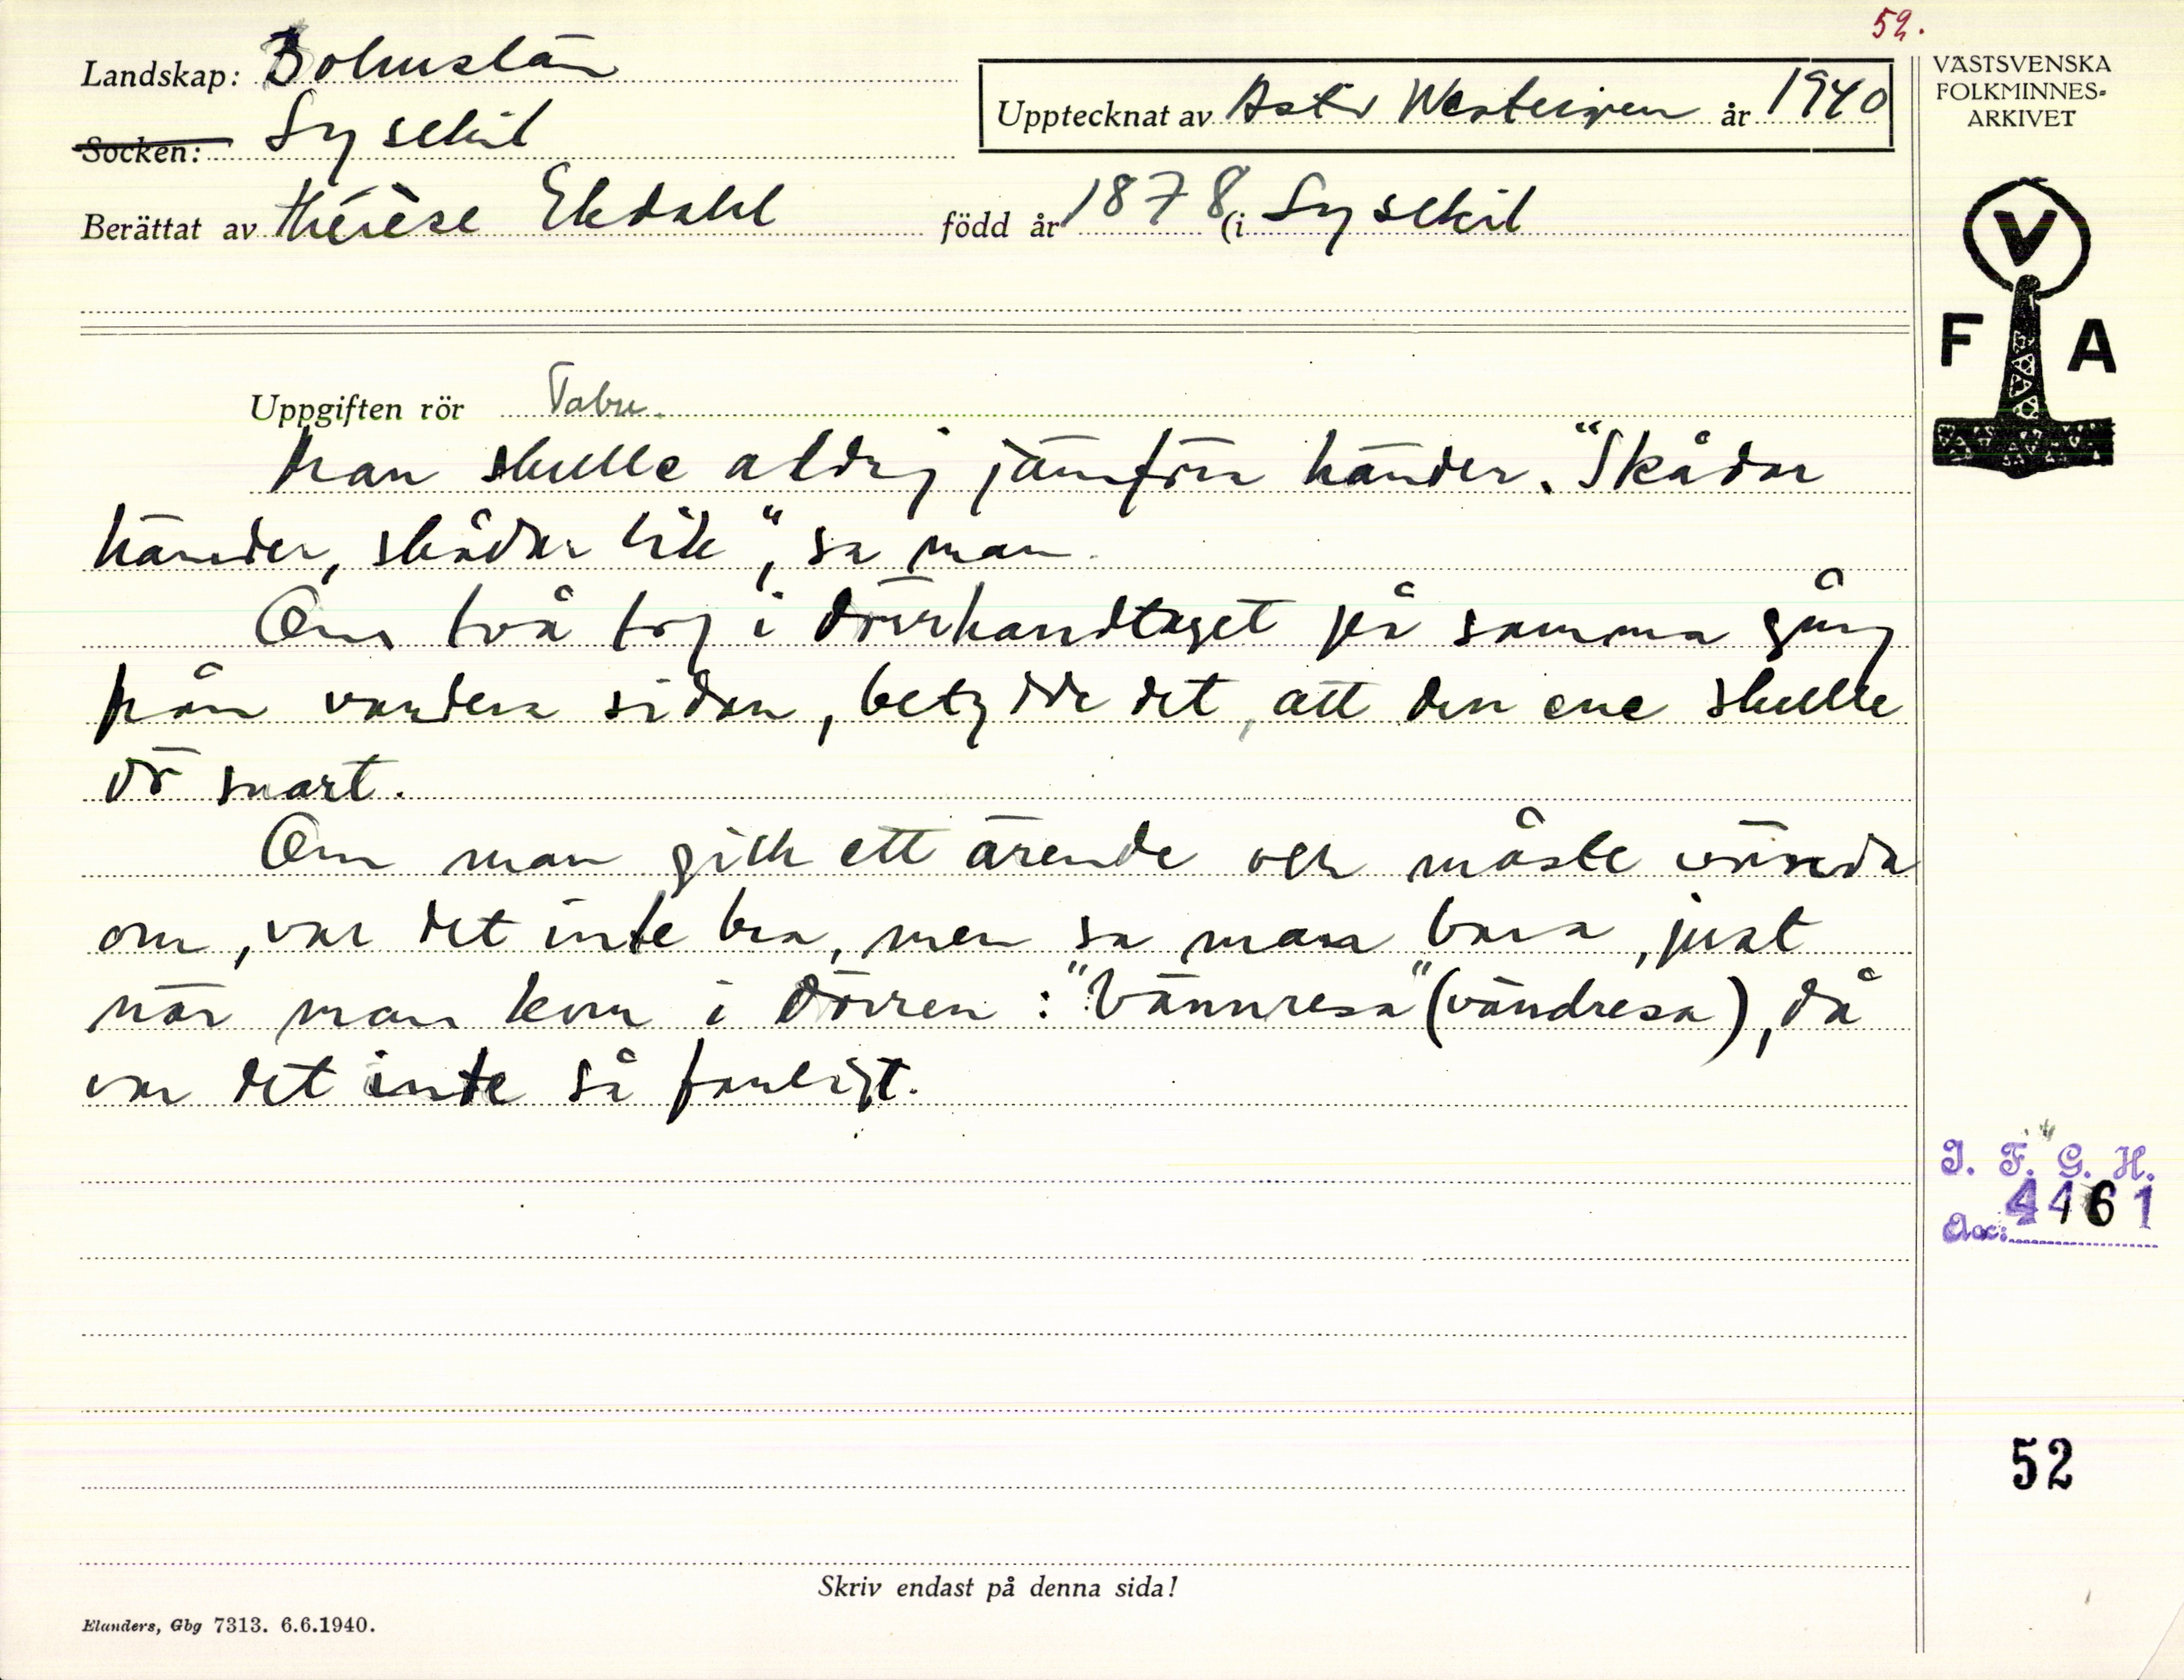 52.
Landskap: Bohuslän
Socken: Lysekil
Upptecknat av Astv Westergren år 1940
Berättat av Thérèse Ekdahl född år 1878 (i Lysekil
VÄSTSVENSKA
FOLKMINNES-
ARKIVET
V
F A
Uppgiften rör Tabu.
Man skulle aldrig jämföra händer. "Skådar
händer, skådar lik", sa man.
Om två tog i dörrhandtaget på samma gång
från vardera sidan, betydde det, att den ene skulle
dö snart.
Om man gick ett ärende och måste vända
om, var det inte bra, men sa man bara, just
när man kom i dörren: "Vännresa" (vändresa), då
var det inte så farligt.
I. F. G. H.
Acc: 4461
52
Skriv endast på denna sida!
Elanders, Gbg 7313. 6.6.1940.